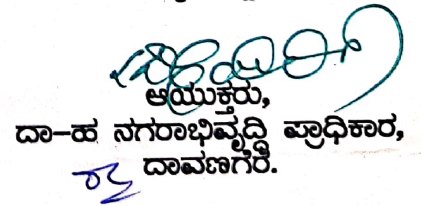 ಆಯುಕ್ತರು,
ದಾ-ಹ ನಗರಾಭಿವೃದ್ಧಿ ಪ್ರಾಧಿಕಾರ,
ದಾವಣಗೆರೆ.